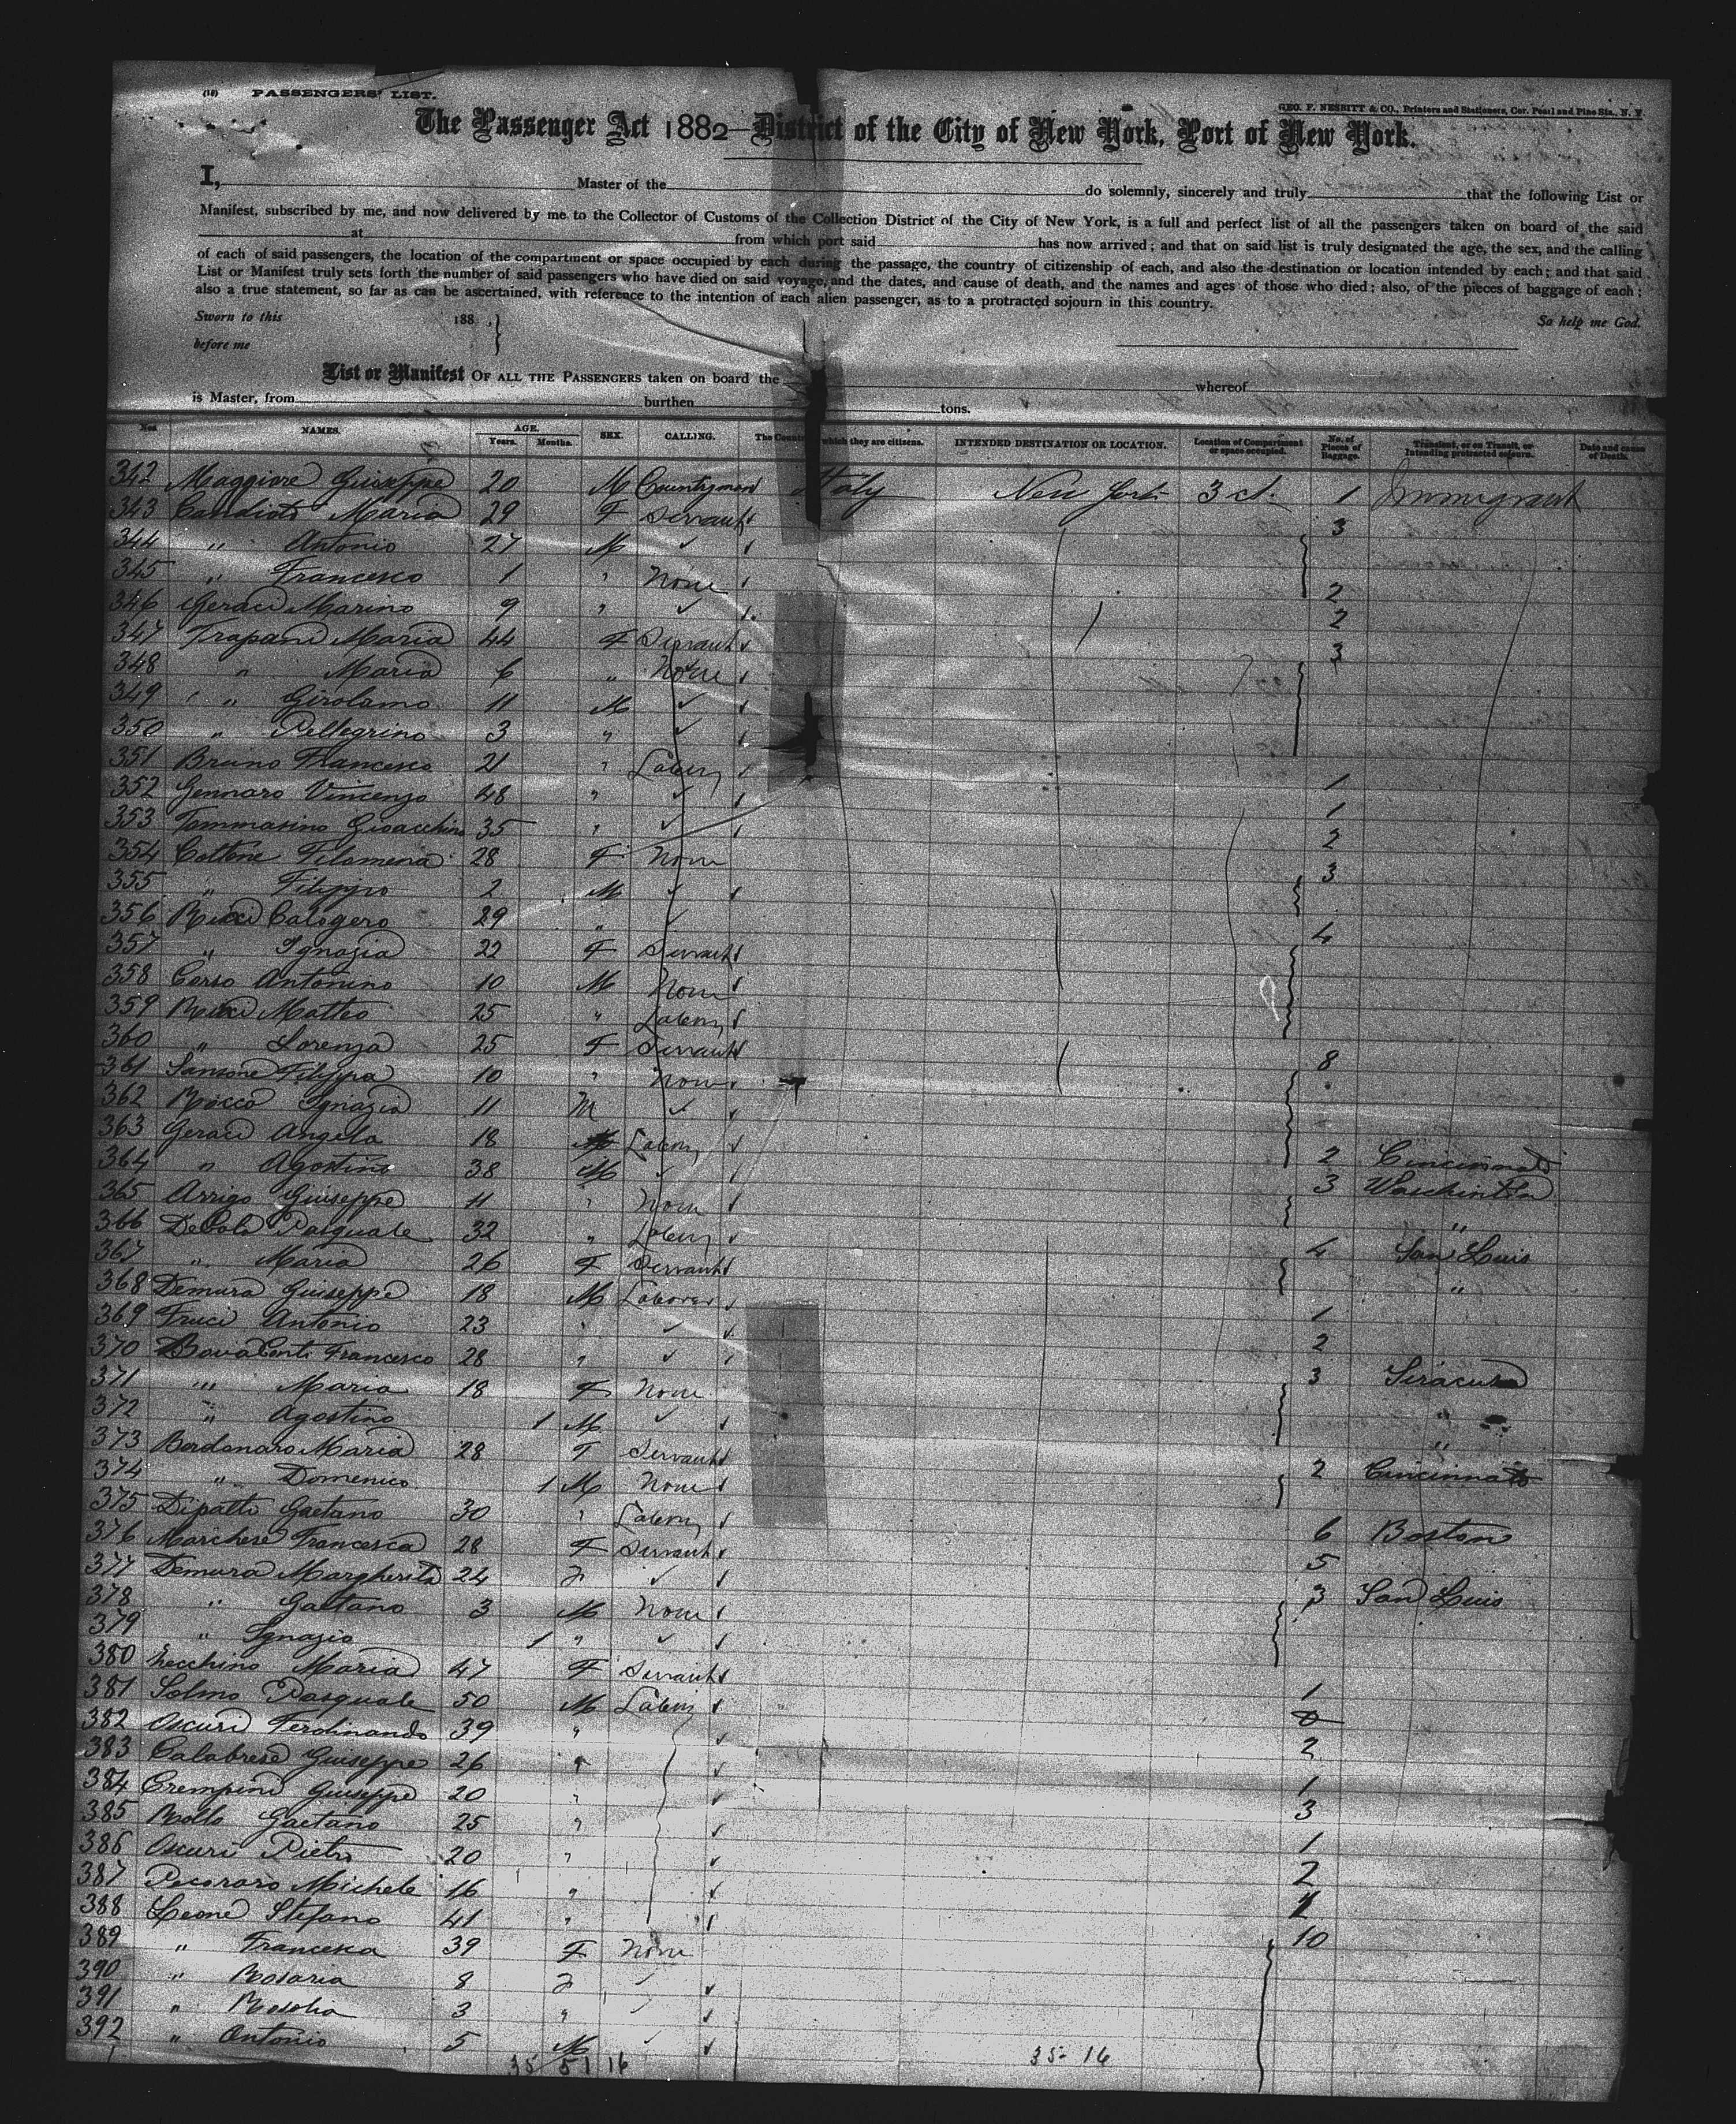 (10) PASSENGERS' LIST.
GEO. F. NESBITT & CO., Printers and Stationers, Cor. Pearl and Pine Sts., N. Y.
The Passenger Act 1882—District of the City of New York, Port of New York.
I, Master of the do solemnly, sincerely and truly that the following List or
Manifest, subscribed by me, and now delivered by me to the Collector of Customs of the Collection District of the City of New York, is a full and perfect list of all the passengers taken on board of the said
at from which port said has now arrived; and that on said list is truly designated the age, the sex, and the calling
of each of said passengers, the location of the compartment or space occupied by each during the passage, the country of citizenship of each, and also the destination or location intended by each; and that said
List or Manifest truly sets forth the number of said passengers who have died on said voyage, and the dates, and cause of death, and the names and ages of those who died; also, of the pieces of baggage of each;
also a true statement, so far as can be ascertained, with reference to the intention of each alien passenger, as to a protracted sojourn in this country.
Sworn to this 188 . } So help me God.
before me
List or Manifest OF ALL THE PASSENGERS taken on board the whereof
is Master, from burthen tons.
Nos. NAMES. AGE. Years. Months. SEX. CALLING. The Country of which they are citizens. INTENDED DESTINATION OR LOCATION. Location of Compartment or space occupied. No. of Pieces of Baggage. Transient, or on Transit, or Intending protracted sojourn. Date and cause of Death.
342 Maggiore Giuseppe 20 M Countryman Italy New York 3 cl. 1 Immigrant
343 Candioto Maria 29 F Servant 3
344 " Antonio 27 M
345 " Francesco 1 " None 2
346 Geraci Marino 9 " 2
347 Trapani Maria 44 F Servant 3
348 " Maria 6 " None
349 " Girolamo 11 M
350 " Pellegrino 3 "
351 Bruno Francesco 21 " 
352 Gennaro Vincenzo 48 " 1
353 Tommasino Gioacchino 35 " 2
354 Cottone Filomena 28 F None 3
355 " Filippo 2 M
356 Calogero 29 " 4
357 " Ignazia 22 F Servant
358 Corso Antonino 10 M None
359 Matteo 25 "
360 " Lorenza 25 F Servant 8
361 Sansone Filippa 10 " None
362 Rocco Ignazio 11 M
363 Geraci Angelo 18 2 Cincinnati
364 " Agostino 38 M 3 Waschinton
365 Arrigo Giuseppe 11 " None "
366 Pasquale 32 " 4 San Luis
367 " Maria 26 F Servant "
368 Demura Giuseppe 18 M Laborer 1
369 Fruci Antonio 23 " 2
370 Francesco 28 " 3 Siracusa
371 " Maria 18 F None "
372 " Agostino 1 M "
373 Bordonaro Maria 28 F Servant 2 Cincinnati
374 " Domenico 1 M None
375 Dipatti Gaetano 30 " 6 Boston
376 Marchese Francesca 28 F Servant 5
377 Demura Margherita 24 F 3 San Luis
378 " Gaetano 3 M None
379 " Ignazio 1 "
380 Zecchino Maria 47 F Servant 1
381 Solmo Pasquale 50 M
382 Oscuri Ferdinando 39 " 2
383 Calabrese Giuseppe 26 " 1
384 Crempino Giuseppe 20 " 3
385 Rollo Gaetano 25 " 1
386 Oscuri Pietro 20 " 2
387 Pecoraro Michele 16 "
388 Leone Stefano 41 " 10
389 " Francesca 39 F None
390 " Rosaria 8 F
391 " Rosolia 3 "
392 " Antonio 5 M
35 51 16 35 16